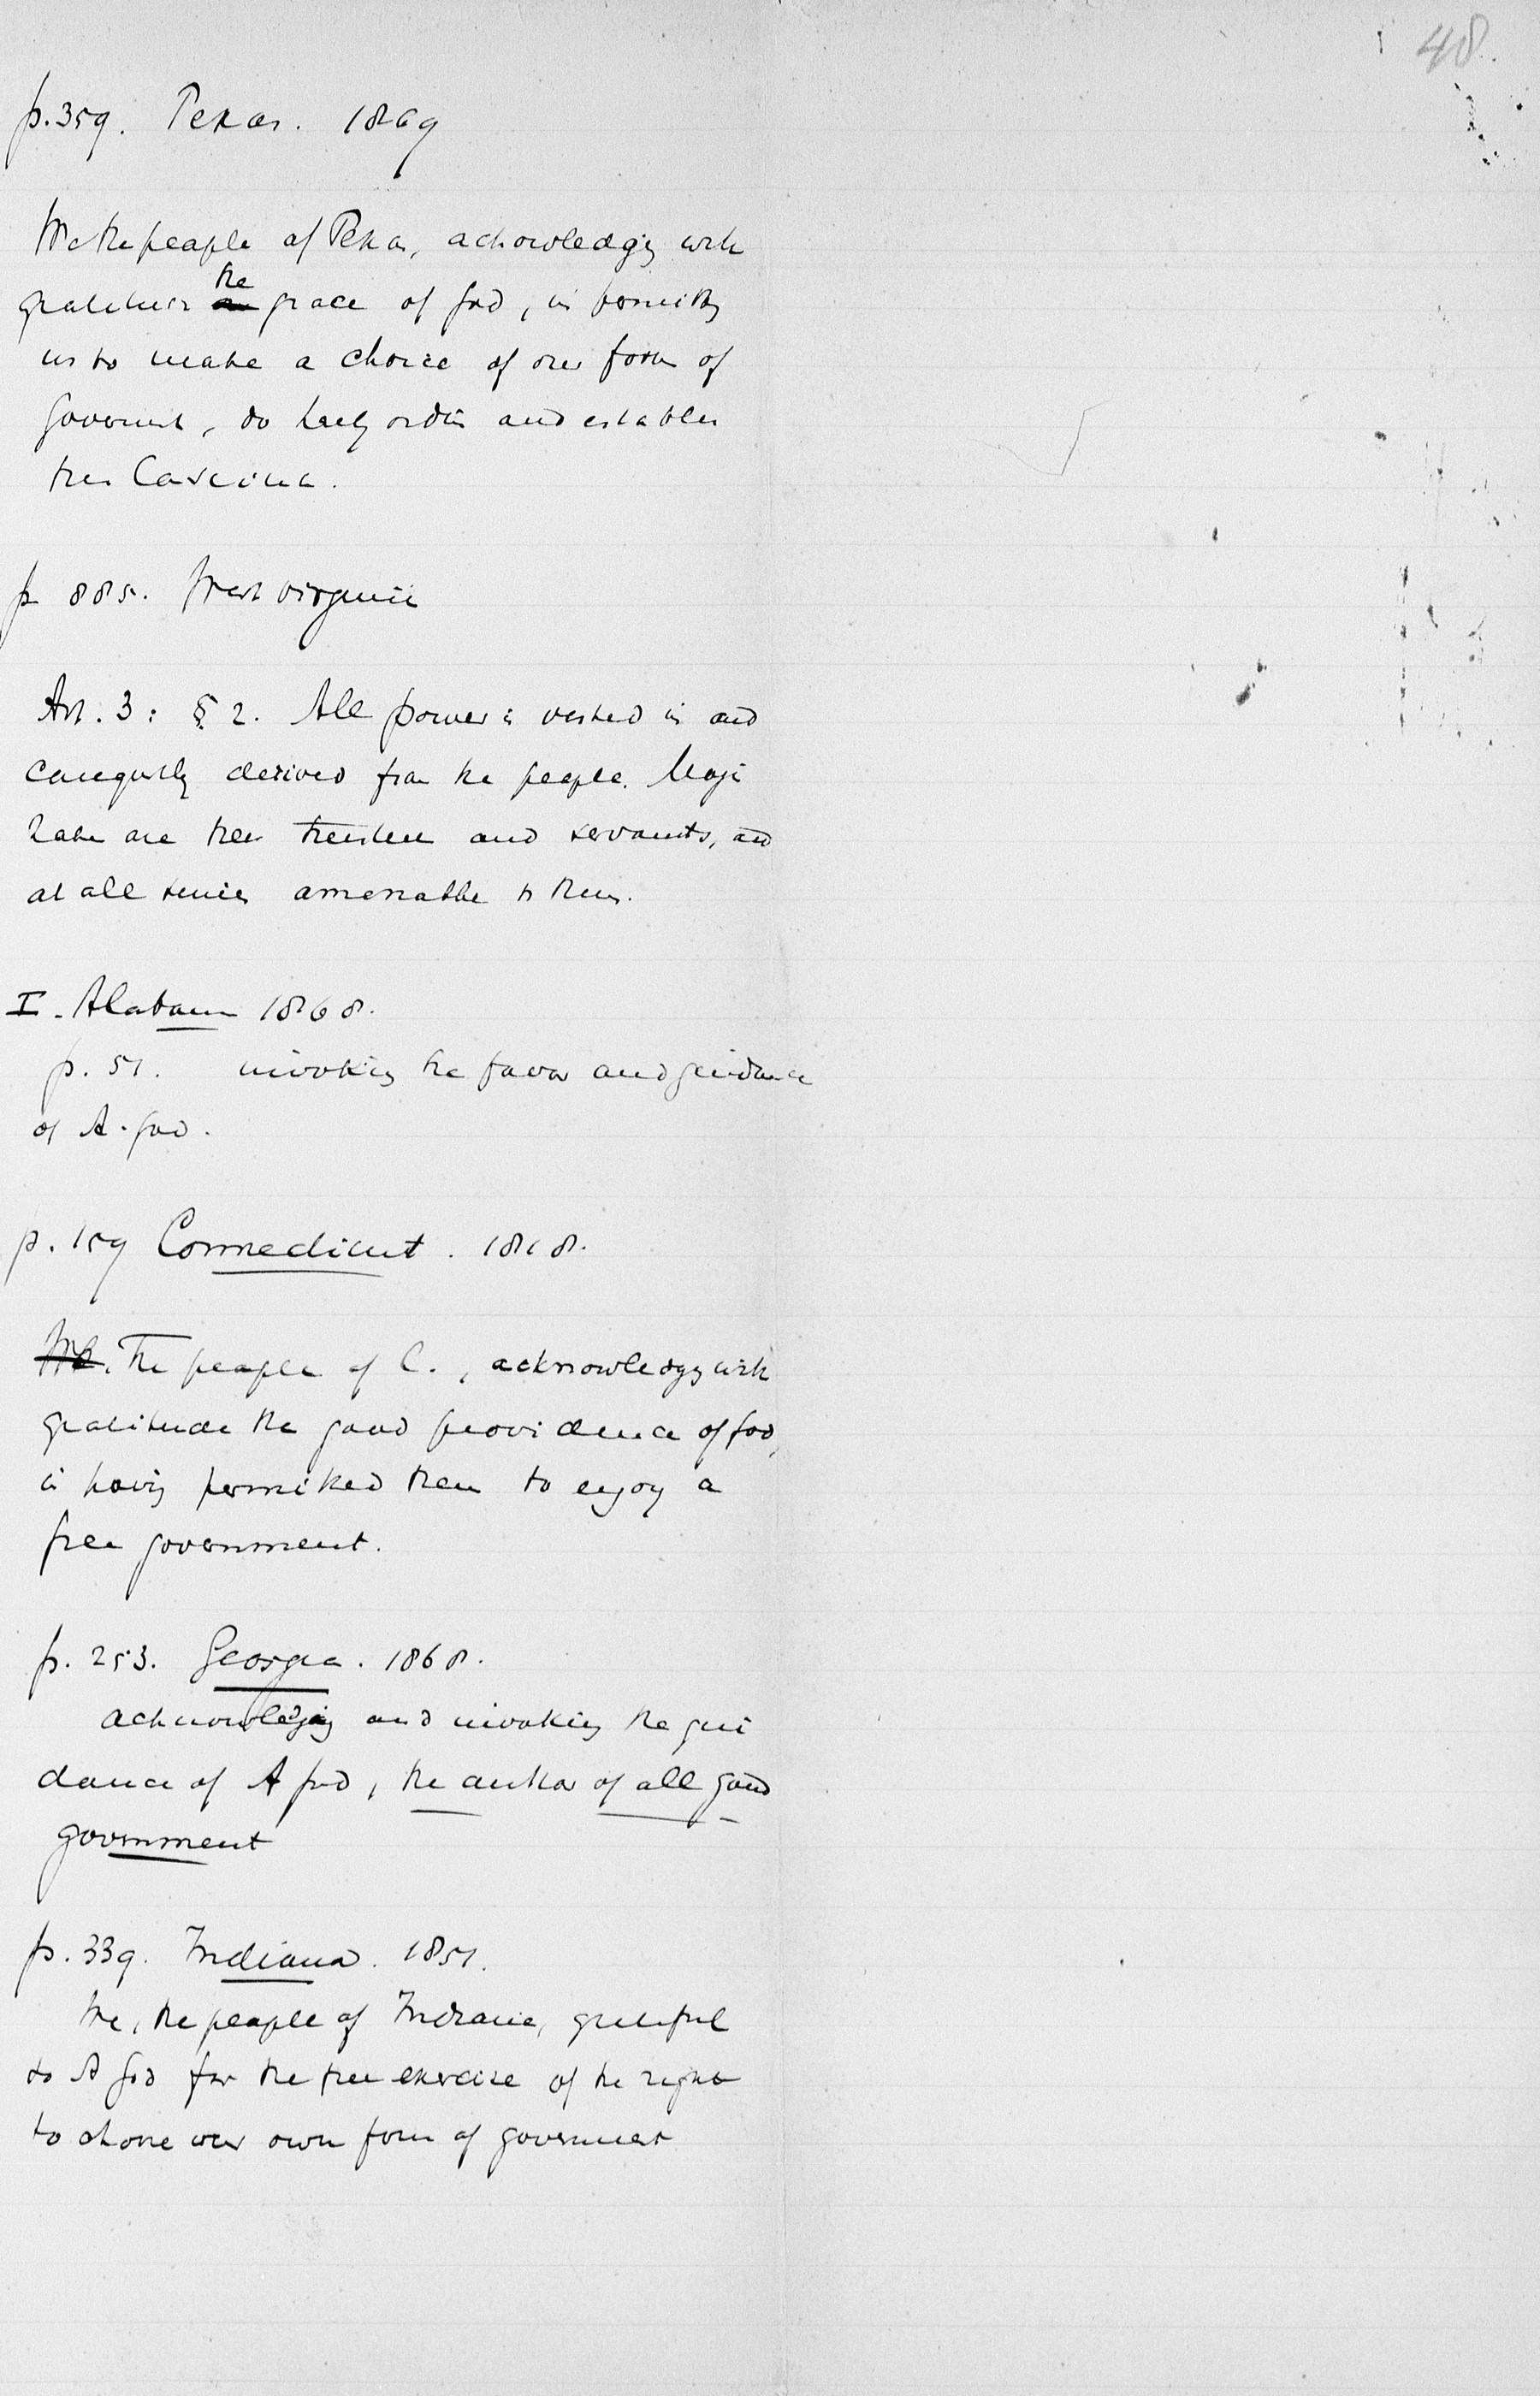 48.
p. 359. Texas. 1869
We the people of Texas, acknowledging with
gratitude the grace of God, in permitting
us to make a choice of our form of
Government, do hereby ordain and establish
this Constitution.
p 885. West Virginia
Art. 3: § 2. All power is vested in and
consequently derived from the people. Magis
trates are their trustees and servants, and
at all times amenable to them.
I. Alabama 1868.
p. 51. invoking the favor and guidance
of A. God.
p. 159 Connecticut. 1818.
We. The people of C., acknowledging with
gratitude the good providence of God,
in having permitted them to enjoy a
free government.
p. 253. Georgia. 1868.
acknowledging and invoking the gui
dance of A God, the author of all good
government
p. 339. Indiana. 1851.
We, the people of Indiana, grateful
to A God for the free exercise of the right
to choose our own form of government